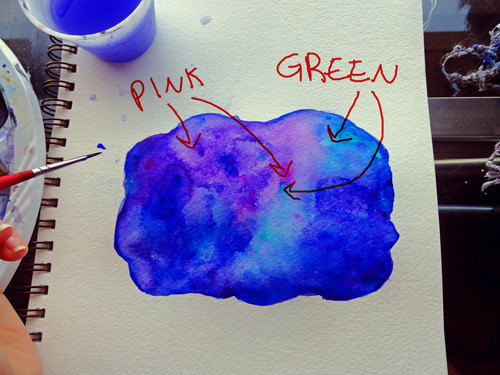 PINK
GREEN